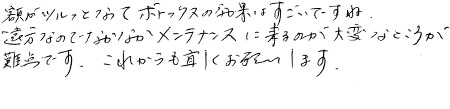 額がツルっとなってボトックスの効果はすごいですね.
遠方なのでなかなかメンテナンスに来るのが大変なところが
難点です. これからも宜しくお願いします.